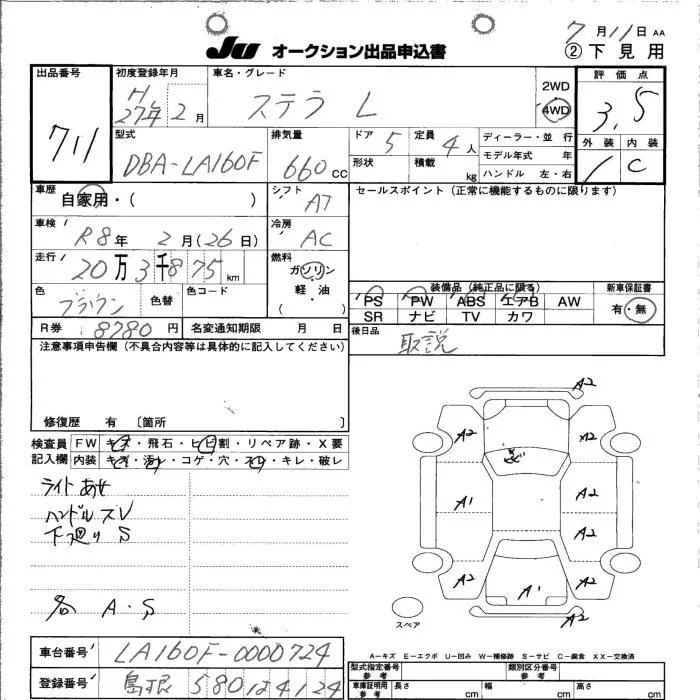 7月11日 AA
JU オークション出品申込書
② 下見用
出品番号
711
初度登録年月
H27年2月
車名・グレード
ステラ L
2WD
4WD
評価点
3.5
型式
DBA-LA160F
排気量
660 CC
ドア
5
定員
4人
形状
積載
kg
ディーラー・並行
モデル年式 年
ハンドル 左・右
外装
内装
C
車歴
自家用・( )
シフト
AT
セールスポイント (正常に機能するものに限ります)
車検
R8年2月(26日)
冷房
AC
走行
20万3千875km
燃料
ガソリン
軽・油
( )
色
ブラウン
色替
色コード
装備品 (純正品に限る)
PS PW ABS エアB AW
SR ナビ TV カワ
新車保証書
有・無
R券 8780円
名変通知期限 月 日
後日品
取説
注意事項申告欄 (不具合内容等は具体的に記入してください)
修復歴 有 〔箇所 〕
検査員
記入欄
FW キズ・飛石・ヒビ割・リペア跡・X要
内装 キズ・汚レ・コゲ・穴・スレ・キレ・破レ
ライトあせ
ハンドルスレ
下廻り S
各 A・S
A2
A2
A2
A1
A2
A2
A2
A1
A2
A2
スペア
車台番号
LA160F-0000724
登録番号
島根 580
A-キズ E-エクボ U-凹み W-補修跡 S-サビ C-腐食 XX-交換済
型式指定番号
参考
類別区分番号
参考
車庫証明用
参考
長さ cm
幅 cm
高さ cm